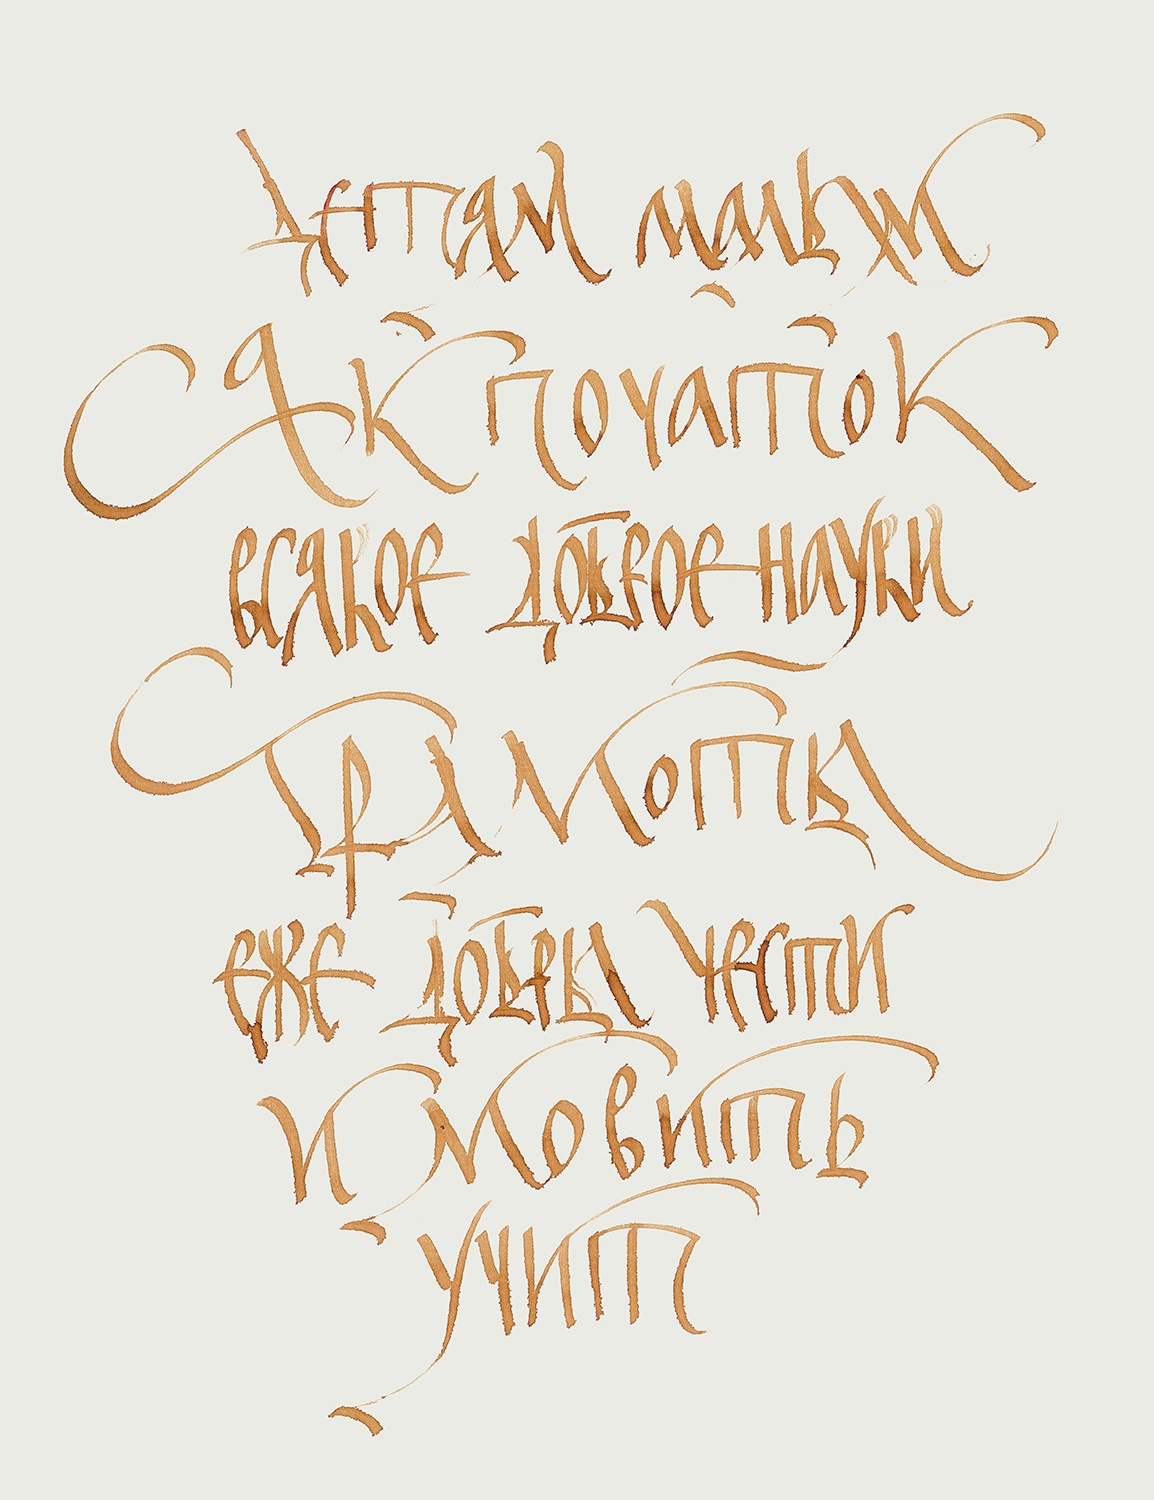 детям малым
як початок
всякое доброе науки
грамоты
еже добры чести
и мовить
учит